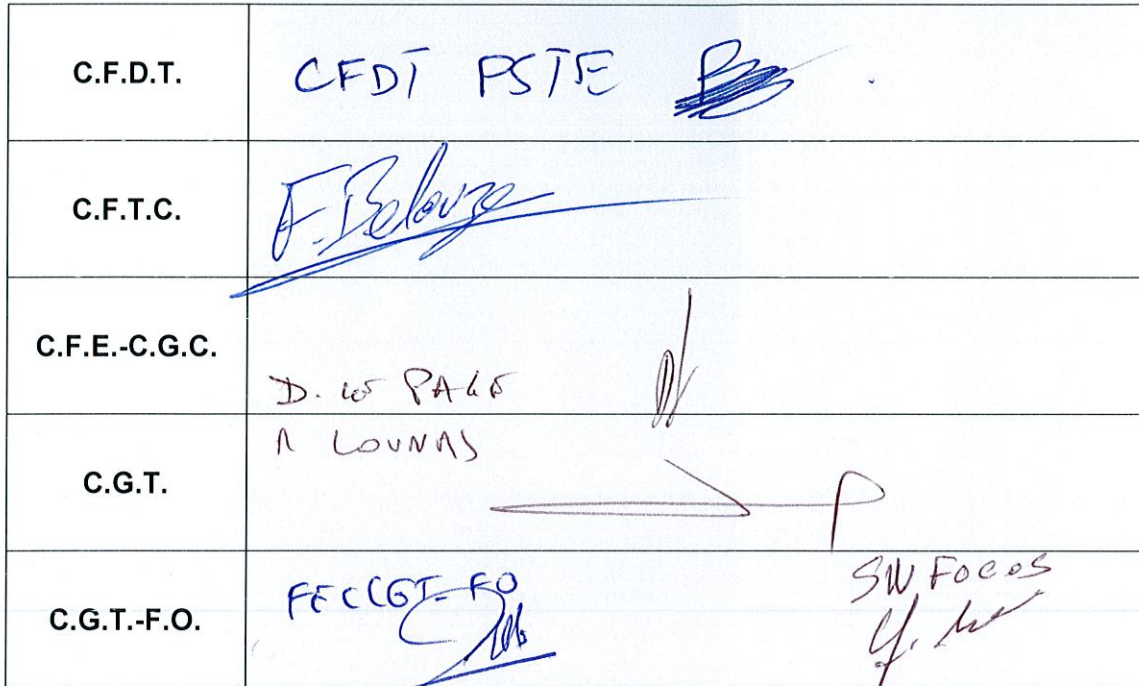 C.F.D.T.
CFDT PSTE
C.F.T.C.
F. Belouze
C.F.E.-C.G.C.
D. LE PAGE
C.G.T.
A LOUNAS
C.G.T.-F.O.
FECCGT-FO
SN FOCOS